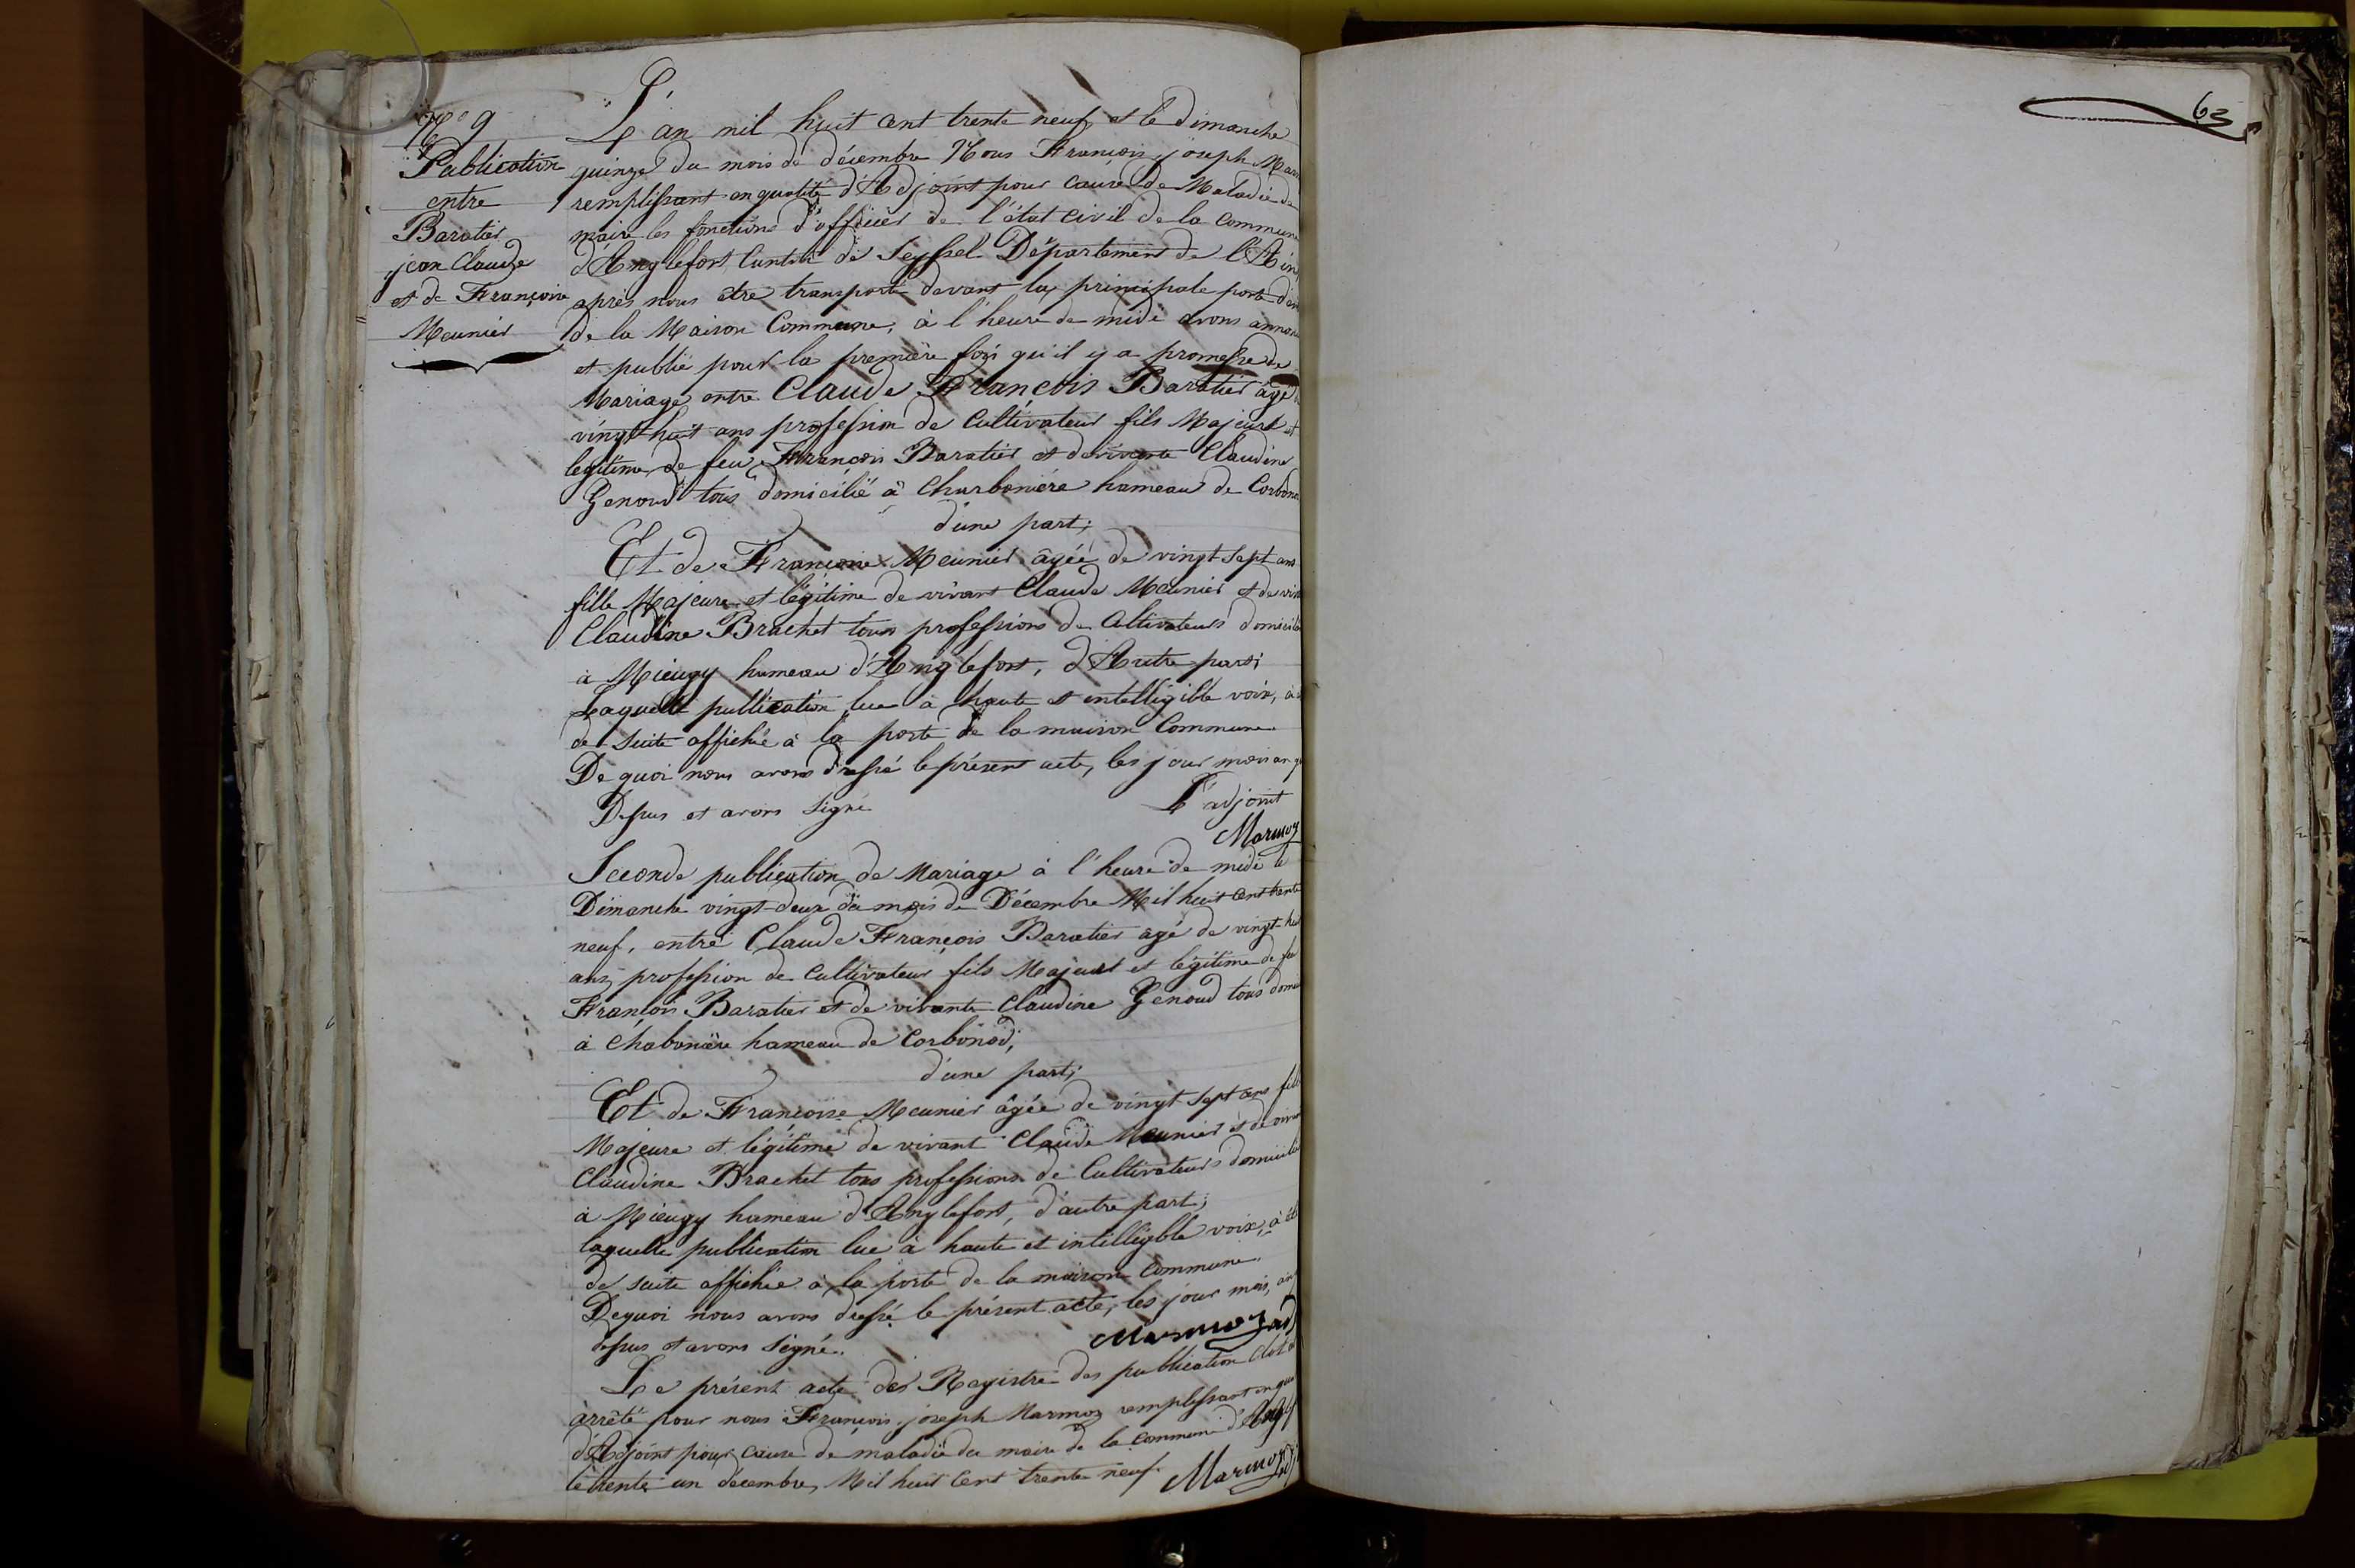 N° 9
Publication
entre
Baratier
jean Claude
et de Françoise
Meunier
L'an mil huit cent trente neuf et le dimanche
quinze du mois de décembre Nous François joseph Mar
remplissant en qualité d'Adjoint pour cause de Maladie de
maire les fonctions d'officier de l'état civil de la Commune
d'Anglefort Canton de Seyssel Département de l'Ain
après nous être transporté devant la principale porte d'en
de la Maison Commune, à l'heure de midi avons annon
et publié pour la première fois qu'il y a promesse de
Mariage entre Claude François Baratier âgé d
vingt huit ans profession de Cultivateur fils Majeur et
legitime de feu François Baratier et de vivante Claudine
Genoud tous domicilié à Charbonière hameau de Corbono
d'une part;
Et de Françoise Meunier âgée de vingt sept ans
fille Majeure et légitime de vivant Claude Meunier et de viv
Claudine Brachet tous professions de Cultivateurs domicilié
à Mieugy hameau d'Anglefort, d'Autre part;
Laquelle publication lue à haute et intelligible voix, à
de suite affichée à la porte de la maison Commune
De quoi nous avons dressé le présent acte, les jour mois an q
Dessus et avons Signé
L'adjoint
Marmoz
Seconde publication de Mariage à l'heure de midi le
Dimanche vingt-deux du mois de Décembre Mil huit cent trente
neuf, entre Claude François Baratier âgé de vingt huit
ans, profession de Cultivateur fils Majeur et legitime de feu
François Baratier et de vivante Claudine Genoud tous domi
à Chabonière hameau de Corbonod,
d'une part;
Et de Françoise Meunier âgée de vingt sept ans fille
Majeure et légitime de vivant Claude Meunier et de vivan
Claudine Brachet tous professions de Cultivateurs domicilié
à Mieugy hameau d'Anglefort, d'autre part;
laquelle publication lue à haute et intelligble voix, à été
de suite affichée à la porte de la maison Commune.
De quoi nous avons dressé le présent acte, les jour mois, an
dessus et avons Signé.
Marmoz ad
Le présent acte des Registre des publication clot
arrêté pour nous François joseph Marmoz remplissant en qua
d'Adjoint pour cause de maladie du maire de la commune d'Angl
le trente un décembre Mil huit Cent trente neuf.
Marmoz adj
63